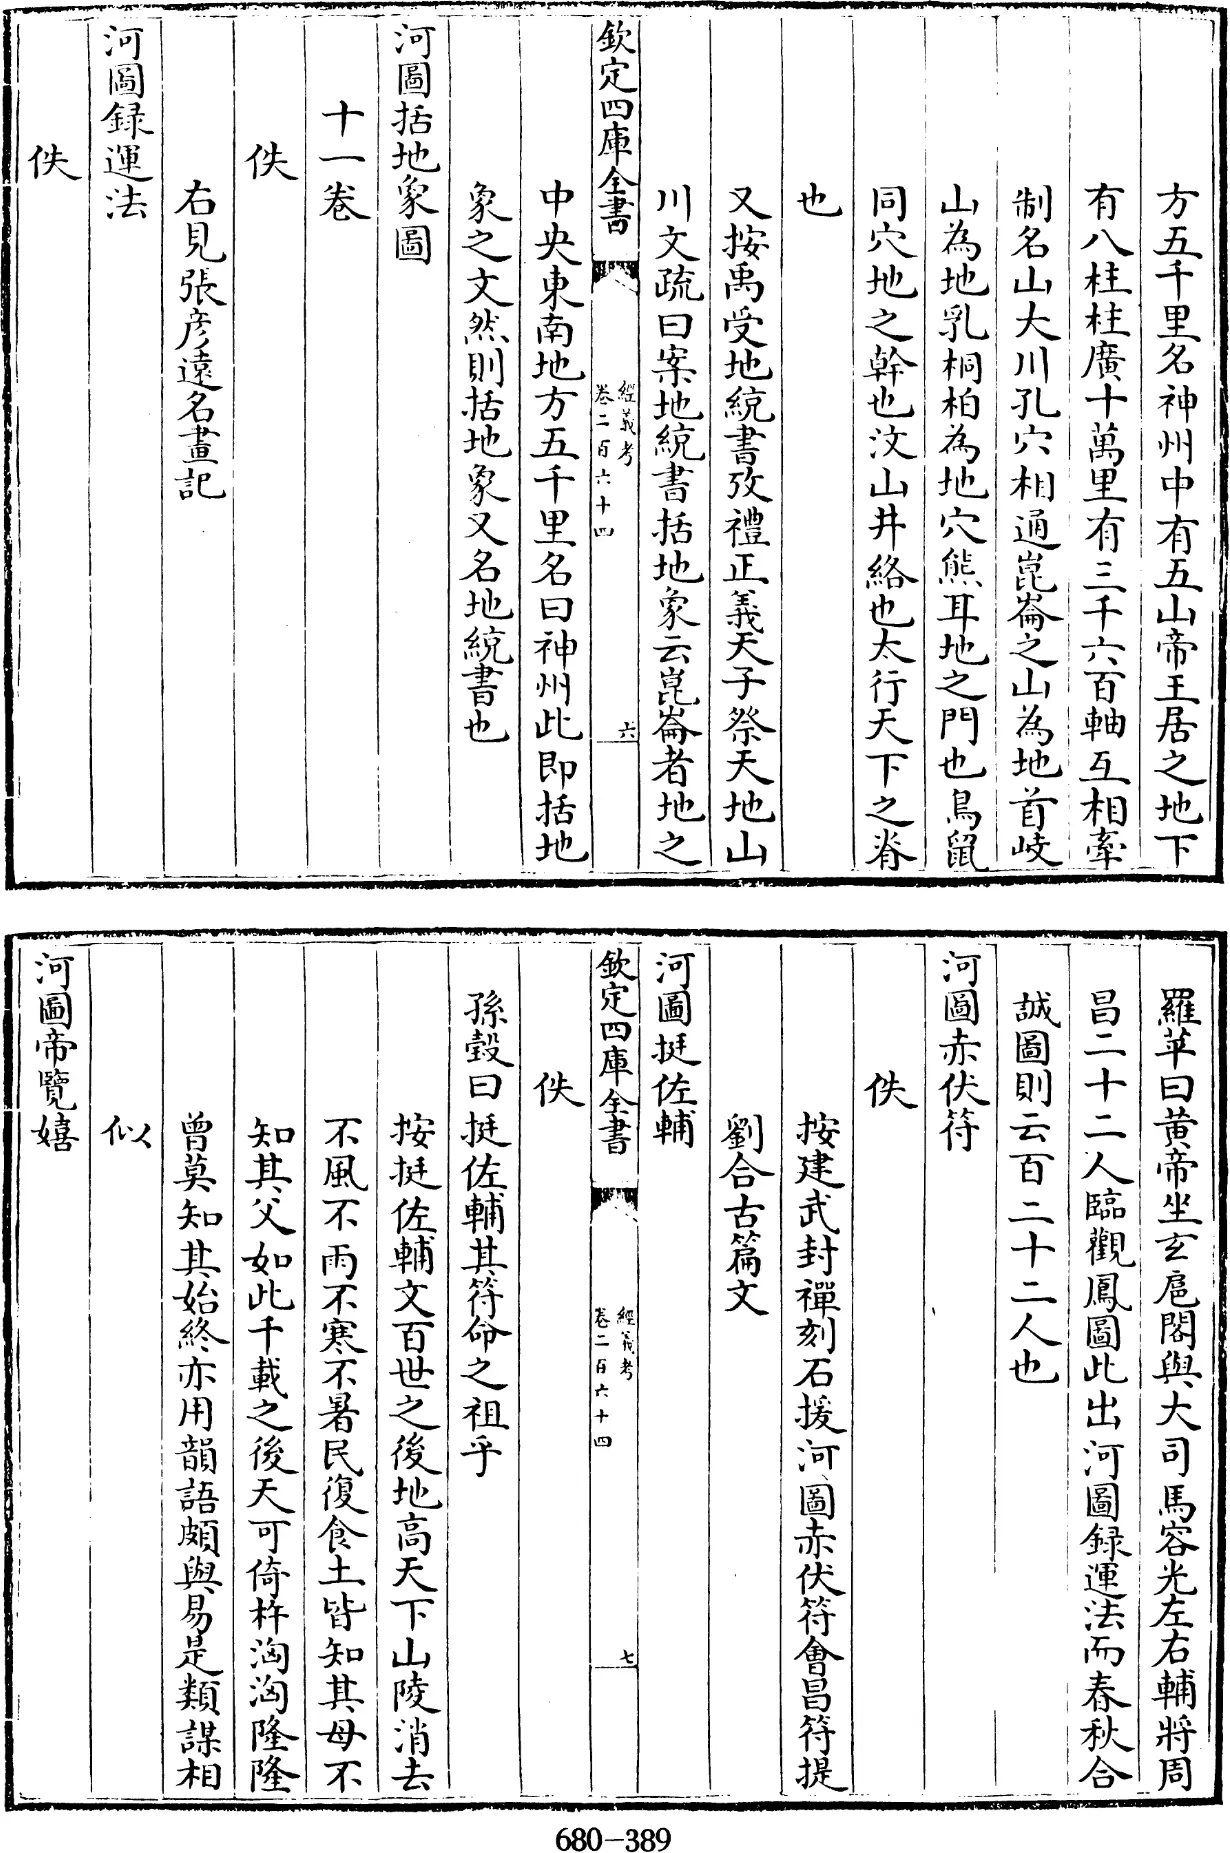 方五千里名神州中有五山帝王居之地下
有八柱柱廣十萬里有三千六百軸互相牽
制名山大川孔穴相通崑崙之山為地首岐
山為地乳桐柏為地穴熊耳地之門也鳥鼠
同穴地之幹也汶山井絡也太行天下之脊
也
又按禹受地統書攷禮正義天子祭天地山
川文疏曰案地統書括地象云崑崙者地之
欽定四庫全書
經義考
卷二百六十四
六
中央東南地方五千里名曰神州此即括地
象之文然則括地象又名地統書也
河圖括地象圖
十一卷
佚
右見張彦遠名畫記
河圖録運法
佚
羅苹曰黄帝坐玄扈閣與大司馬容光左右輔將周
昌二十二人臨觀鳳圖此出河圖録運法而春秋合
誠圖則云百二十二人也
河圖赤伏符
佚
按建武封禪刻石援河圖赤伏符會昌符提
劉合古篇文
河圖挺佐輔
欽定四庫全書
經義考
卷二百六十四
七
佚
孫瑴曰挺佐輔其符命之祖乎
按挺佐輔文百世之後地高天下山陵消去
不風不雨不寒不暑民復食土皆知其母不
知其父如此千載之後天可倚杵洶洶隆隆
曾莫知其始終亦用韻語頗與易是類謀相
似
河圖帝覽嬉
680-389